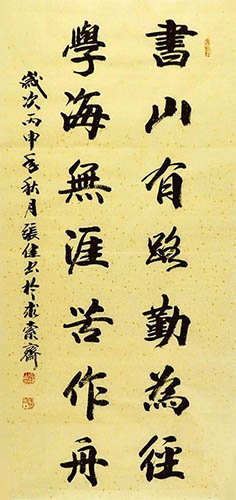 書山有路勤為徑
學海無涯苦作舟
歲次丙申年秋月張健書於求索齋